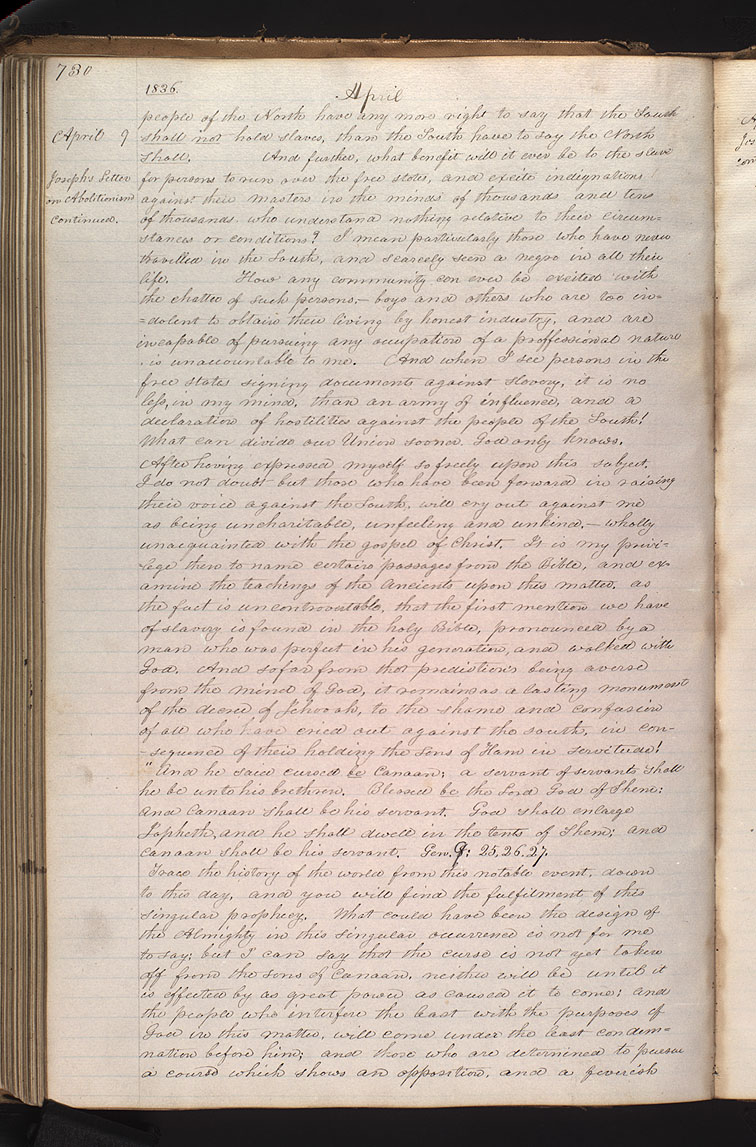 730
1836.
April
people of the North have any more right to say that the South
April 9
shall not hold slaves, than the South have to say the North
shall. And further, what benefit will it ever be to the slave
Joseph's Letter
for persons to run over the free states, and excite indignation
on Abolitionism
against their masters in the minds of thousands and tens
continued.
of thousands who understand nothing relative to their circum=
stances or conditions? I mean particularly those who have never
travelled in the South, and scarcely seen a negro in all their
life. How any community can ever be excited with
the chatter of such persons,— boys and others who are too in=
=dolent to obtain their living by honest industry, and are
incapable of pursuing any occupation of a proffessional nature
is unaccountable to me. And when I see persons in the
free states signing documents against slavery, it is no
less, in my mind, than an army of influence, and a
declaration of hostilities against the people of the South!
What can divide our Union sooner, God only knows.
After having expressed myself so freely upon this subject,
I do not doubt but those who have been forward in raising
their voice against the South, will cry out against me
as being uncharitable, unfeeling and unkind,— wholly
unacquainted with the gospel of Christ. It is my privi=
=lege then to name certain passages from the Bible, and ex=
amine the teachings of the Ancients upon this matter, as
the fact is uncontrovertable, that the first mention we have
of slavery is found in the holy Bible, pronounced by a
man who was perfect in his generation, and walked with
God. And so far from that prediction's being averse
from the mind of God, it remains as a lasting monument
of the decree of Jehovah, to the shame and confusion
of all who have cried out against the South, in con-
-sequence of their holding the sons of Ham in servitude!
"And he said cursed be Canaan; a servant of servants shall
he be unto his brethren. Blessed be the Lord God of Shem;
and Canaan shall be his servant. God shall enlarge
Japheth, and he shall dwell in the tents of Shem; and
Canaan shall be his servant. Gen. 9: 25, 26, 27.
Trace the history of the world from this notable event, down
to this day, and you will find the fulfilment of this
singular prophecy. What could have been the design of
the Almighty in this singular occurrence is not for me
to say; but I can say that the curse is not yet taken
off from the sons of Canaan, neither will be until it
is effected by as great power as caused it to come; and
the people who interfere the least with the purposes of
God in this matter, will come under the least condem=
nation before him; and those who are determined to pursue
a course which shows an opposition, and a feverish